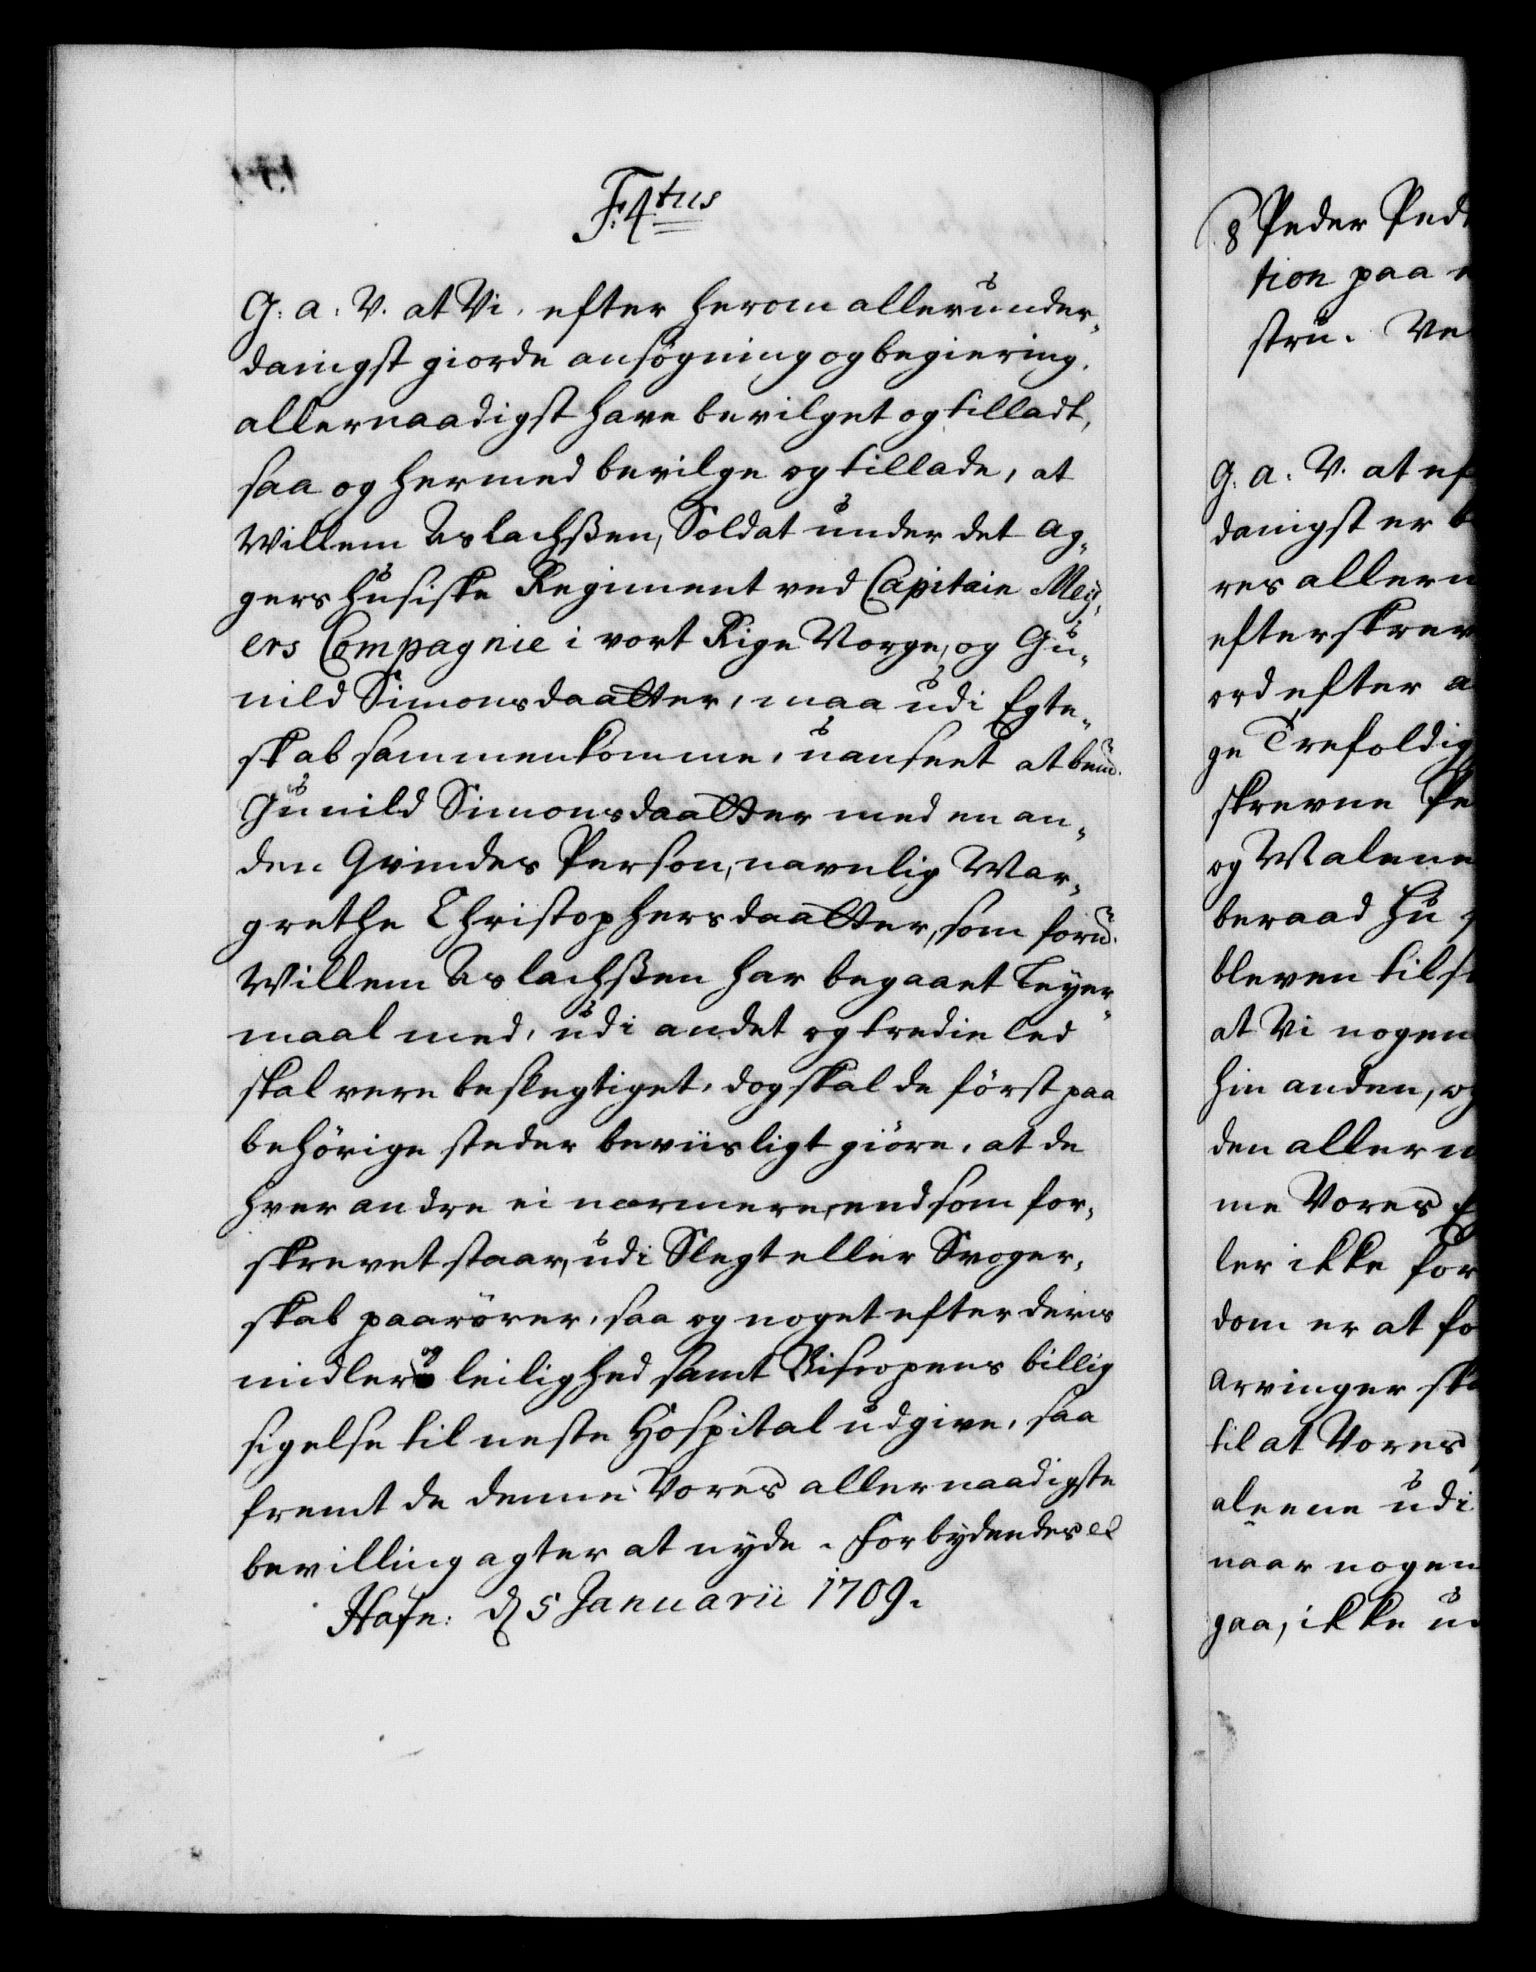 F. 4tus
G: a: V. at Vi, efter herom allerunder„
danigst giorde ansögning og begiering,
allernaadigst have bevilget og tilladt,
saa og hermed bevilge og tillade, at
Willem Aslachßen, Soldat under det Ag„
gershusiske Regiment ved Capitain Meÿ„
ers Compagnie i vort Rige Norge, og Gu„
nild Simonsdaatter, maa udi Egte„
skab sammenkomme, uanseet at bem.
Gunild Simonsdaatter med en an„
den Qvindes Person, navnlig Mar„
grethe Christophersdaatter, som forn.
Willem Aslachßen har begaaet Leyer„
maal med, udi andet og tredie led
skal vere beslegtiget, dog skal de först paa
behörige steder beviisligt giöre, at de
hver andre ei nærmere, end som for„
skrevet staar, udi Slegt eller Svoger„
skab paarörer, saa og noget efter deris
midler og leilighed samt Biscopens billig
sigelse til neste Hospital udgive, saa
fremt de denne Vores allernaadigste
bevilling agter at nyde. Forbydendes etc
Hafn: d 5 Januarii 1709.
Peder Ped
tion paa
stru. Ve
G. a. V. at ef
danigst er b
res allern
efterskrev
ord efter a
ge Trefoldig
skrevne Pe
og Malene
beraad hu
bleven tils
at Vi nogen
hin anden, og
den allern
me Vores E
ler ikke for
dom er at fo
arvinger sk
til at Vores
aleene udi
naar nogen
gaa, ikke u